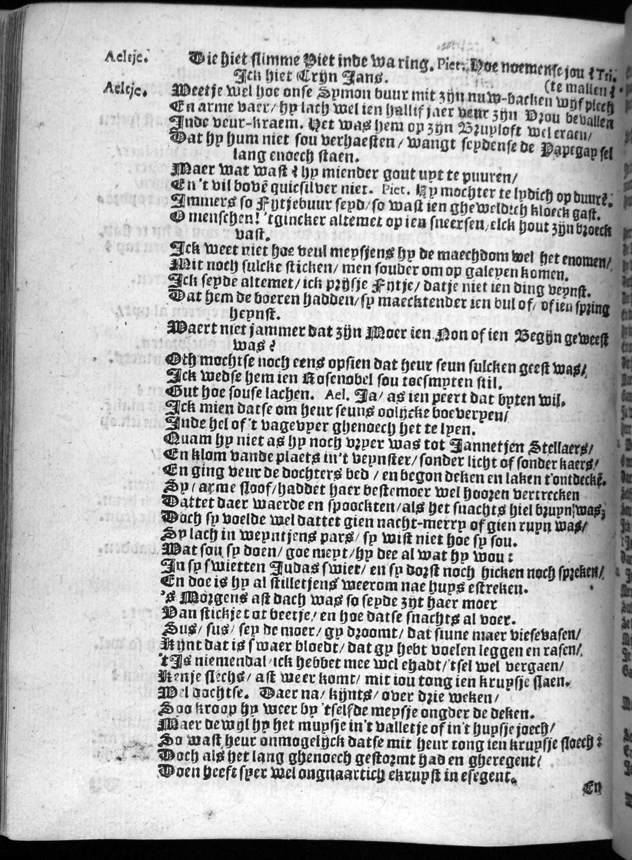 Aeltje. Die hiet slimme Piet inde waring. Piet. Hoe noemense jou? Tri.
Ick hiet Tryn Jans. (te mallen?
Aeltje. Weetje wel hoe onse Symon buur mit zijn nuw-backen wijf pleeh
En arme vaer/ hy lach wel ien hallif jaer veur zijn Vrou bevallen
Inde veur-kraem. Het was hem op zijn Bruyloft wel eraen/
Dat hy hum niet sou verhaesten/ wangt seydense de Papegay sel
lang enoech staen.
Maer wat wast? hy miender gout uyt te puuren/
En 't vil bovē quicsilver niet. Piet. Hy mochter te lydich op duurē.
Immers so Fytjebuur seyd/ so wast ien gheweldich kloeck gast.
O menschen! 'tgincker altemet op ien sneersen/ elck hout zijn broeck
vast.
Ick weet niet hoe veul meysjens hy de maechdom wel het enomen/
Mit noch sulcke sticken/ men souder om op galeyen komen.
Ick seyde altemet/ ick prijsje Fytje/ datje niet ien ding veynst.
Dat hem de boeren hadden/ sy maecktender ien bul of/ of ien spring
heynst.
Waert niet jammer dat zijn Moer ien Non of ien Begijn geweest
was?
Och mochtse noch eens opsien dat heur seun sulcken geest was/
Ick wedse hem ien Rosenobel sou toesmyten stil.
Gut hoe souse lachen. Ael. Ja/ as ien peert dat byten wil.
Ick mien datse om heur seuns oolijcke boeveryen/
Inde hel of 't vagevyer ghenoech het te lyen.
Quam hy niet as hy noch vryer was tot Jannetjen Stellaers/
En klom vande plaets in't veynster/ sonder licht of sonder kaers/
En ging veur de dochters bed/ en begon deken en laken t'ontdeckē.
Sy/ arme sloof/ haddet haer bestemoer wel hooren vertrecken
Dattet daer waerde en spoockten/ als het snachts hiel bruyn was;
Doch sy voelde wel dattet gien nacht-merry of gien ruyn was/
Sy lach in weyntjens pars/ sy wist niet hoe sy sou.
Wat sou sy doen/ goe meyt/ hy dee al wat hy wou:
In sy swietten Judas swiet/ en sy dorst noch hicken noch spreken/
En doe is hy al stilletjens weerom nae huys estreken.
's Morgens ast dach was so seyde zijt haer moer
Van stickje tot beetje/ en hoe datse snachts al voer.
Sus/ sus/ sey de moer/ gy droomt/ dat siune maer viesevasen/
Kijnt dat is swaer bloedt/ dat gy hebt voelen leggen en rasen/
't Is niemendal/ ick hebbet mee wel ehadt/ 'tsel wel vergaen/
Kenje slechs/ ast weer komt/ mit iou tong ien kruysje slaen.
Wel dochtse. Daer na/ kijnts/ over drie weken/
Soo kroop hy weer by 'tselfde meysje ongder de deken.
Maer dewijl hy het muysje in't valletje of in't huysje joech/
So wast heur onmogelijck datse mit heur tong ien kruysje sloech:
Doch als het lang ghenoech gestormt had en gheregent/
Doen heeft syer wel ongnaartich ekruyst in esegent.
En